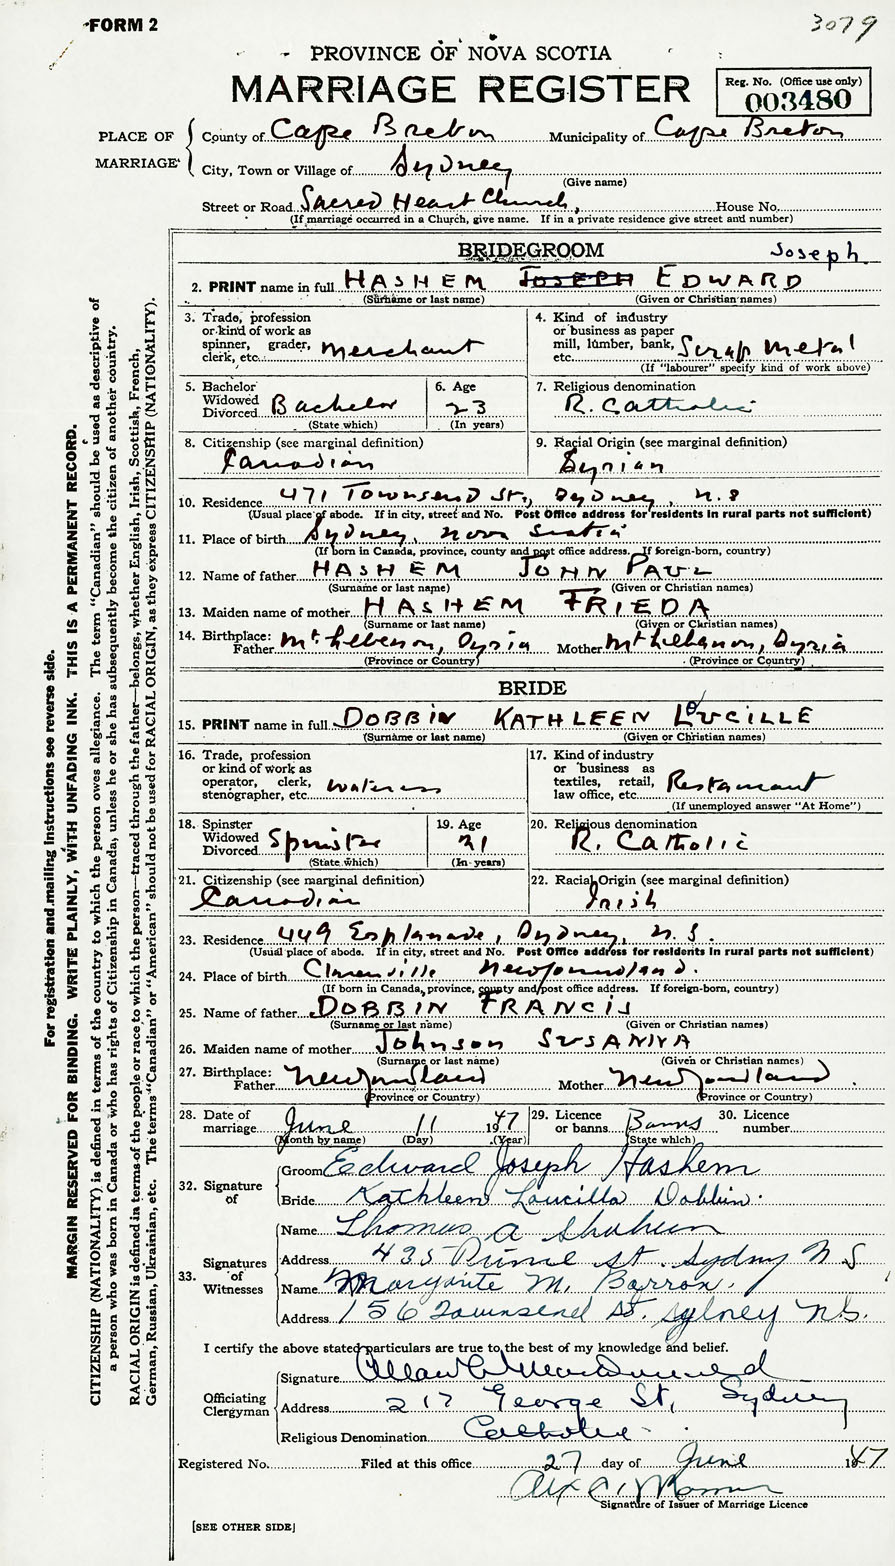 FORM 2
3079
PROVINCE OF NOVA SCOTIA
MARRIAGE REGISTER
Reg. No. (Office use only)
003480
PLACE OF MARRIAGE
County of Cape Breton Municipality of Cape Breton
City, Town or Village of Sydney
(Give name)
Street or Road Sacred Heart Church, House No.
(If marriage occurred in a Church, give name. If in a private residence give street and number)
BRIDEGROOM
Joseph
2. PRINT name in full HASHEM JOSEPH EDWARD
(Surname or last name) (Given or Christian names)
3. Trade, profession or kind of work as spinner, grader, clerk, etc. Merchant
4. Kind of industry or business as paper mill, lumber, bank, etc. Scrap Metal
(If "labourer" specify kind of work above)
5. Bachelor Widowed Divorced Bachelor
(State which)
6. Age 23
(In years)
7. Religious denomination
R. Catholic
8. Citizenship (see marginal definition)
Canadian
9. Racial Origin (see marginal definition)
Syrian
10. Residence 471 Townsend St., Sydney, N.S
(Usual place of abode. If in city, street and No. Post Office address for residents in rural parts not sufficient)
11. Place of birth Sydney, Nova Scotia
(If born in Canada, province, county and post office address. If foreign-born, country)
12. Name of father HASHEM JOHN PAUL
(Surname or last name) (Given or Christian names)
13. Maiden name of mother HASHEM FRIEDA
(Surname or last name) (Given or Christian names)
14. Birthplace: Father Mt. Lebenon, Syria Mother Mt Lebanon, Syria
(Province or Country) (Province or Country)
BRIDE
15. PRINT name in full DOBBIN KATHLEEN LUCILLE
(Surname or last name) (Given or Christian names)
16. Trade, profession or kind of work as operator, clerk, stenographer, etc. Waitress
17. Kind of industry or business as textiles, retail, law office, etc. Restaurant
(If unemployed answer "At Home")
18. Spinster Widowed Divorced Spinster
(State which)
19. Age 21
(In years)
20. Religious denomination
R. Catholic
21. Citizenship (see marginal definition)
Canadian
22. Racial Origin (see marginal definition)
Irish
23. Residence 449 Esplanade, Sydney, N.S.
(Usual place of abode. If in city, street and No. Post Office address for residents in rural parts not sufficient)
24. Place of birth Clarenville Newfoundland.
(If born in Canada, province, county and post office address. If foreign-born, country)
25. Name of father DOBBIN FRANCIS
(Surname or last name) (Given or Christian names)
26. Maiden name of mother Johnson SUSANNA
(Surname or last name) (Given or Christian names)
27. Birthplace: Father Newfoundland Mother Newfoundland.
(Province or Country) (Province or Country)
28. Date of marriage June 11 1947
(Month by name) (Day) (Year)
29. Licence or banns Banns
(State which)
30. Licence number
32. Signature of
Groom Edward Joseph Hashem
Bride Kathleen Loucilla Dobbin.
33. Signatures of Witnesses
Name Thomas A Shaheen
Address 435 St. Sydney N S
Name Margarite M. Barron.
Address 156 Townsend St. Sydney N.S.
I certify the above stated particulars are true to the best of my knowledge and belief.
Officiating Clergyman
Signature
Address 217 George St, Sydney
Religious Denomination Catholic
Registered No. Filed at this office 27 day of June 1947
Alex C.
Signature of Issuer of Marriage Licence
[SEE OTHER SIDE]
For registration and mailing instructions see reverse side.
MARGIN RESERVED FOR BINDING. WRITE PLAINLY, WITH UNFADING INK. THIS IS A PERMANENT RECORD.
CITIZENSHIP (NATIONALITY) is defined in terms of the country to which the person owes allegiance. The term "Canadian" should be used as descriptive of
a person who was born in Canada or who has rights of Citizenship in Canada, unless he or she has subsequently become the citizen of another country.
RACIAL ORIGIN is defined in terms of the people or race to which the person—traced through the father—belongs, whether English, Irish, Scottish, French,
German, Russian, Ukrainian, etc. The terms "Canadian" or "American" should not be used for RACIAL ORIGIN, as they express CITIZENSHIP (NATIONALITY).